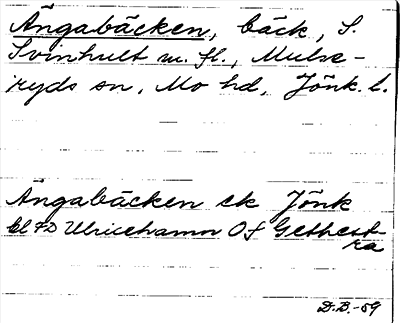 Ängabäcken, bäck, S.
Svinhult m. fl., Mulse-
ryds sn, Mo hd, Jönk. l.
Ängabäcken ek Jönk
bl FD Ulricehamn Of Gethest
ra
D.B.-59